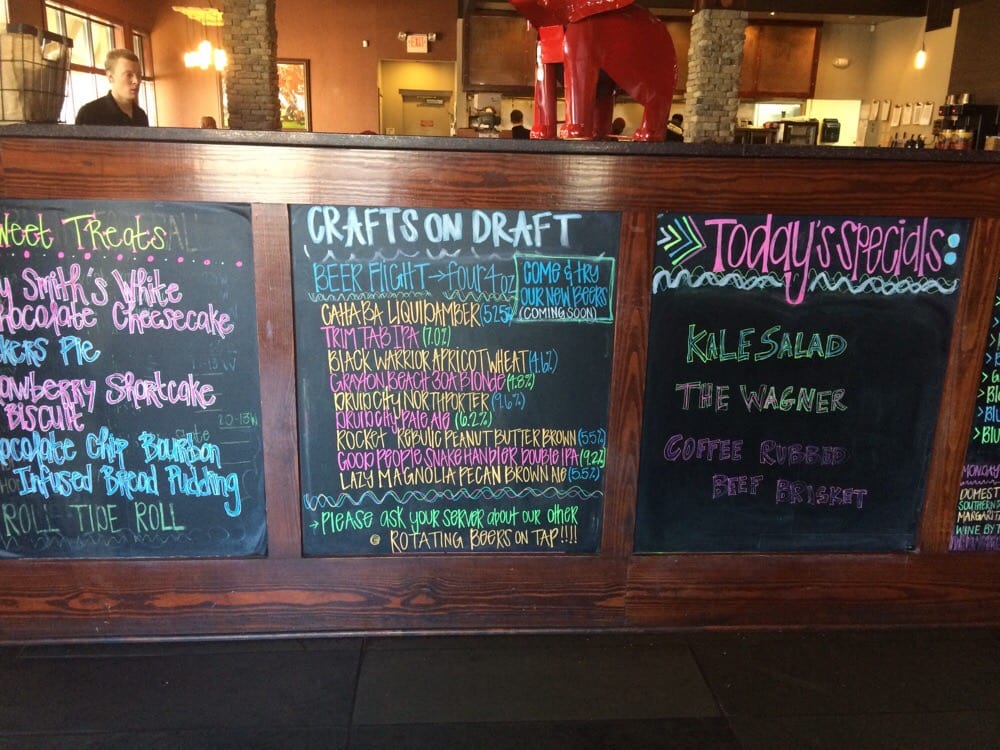 EXIT
weet Treats
y Smith's White
hocolate Cheesecake
kers Pie
rawberry Shortcake
Biscuit
ocolate Chip Bourbon
Infused Bread Pudding
ROLL TIDE ROLL
CRAFTS ON DRAFT
BEER FLIGHT → four 4oz
COME & TRY
OUR NEW BEERS
(COMING SOON)
CAHABA LIQUIDAMBER (5.25%
TRIM TAB IPA (7.0%)
BLACK WARRIOR APRICOT WHEAT (4.6%)
GRAYTON BEACH 30A BLONDE (4.8%)
DRUID CITY NORTHPORTER (9.6%)
DRUID CITY PALE ALE (6.2%)
ROCKET REBULIC PEANUT BUTTER BROWN (5.5%)
GOOD PEOPLE SNAKE HANDLER DOUBLE IPA (9.2%)
LAZY MAGNOLIA PECAN BROWN ALE (5.5%)
→ PLEASE ASK YOUR SERVER ABOUT OUR OTHER
ROTATING BEERS ON TAP!!!!
Today's Specials:
KALE SALAD
THE WAGNER
COFFEE RUBBED
BEEF BRISKET
MONDAY
DOMEST
SOUTHERN
MARGARIT
WINE BY